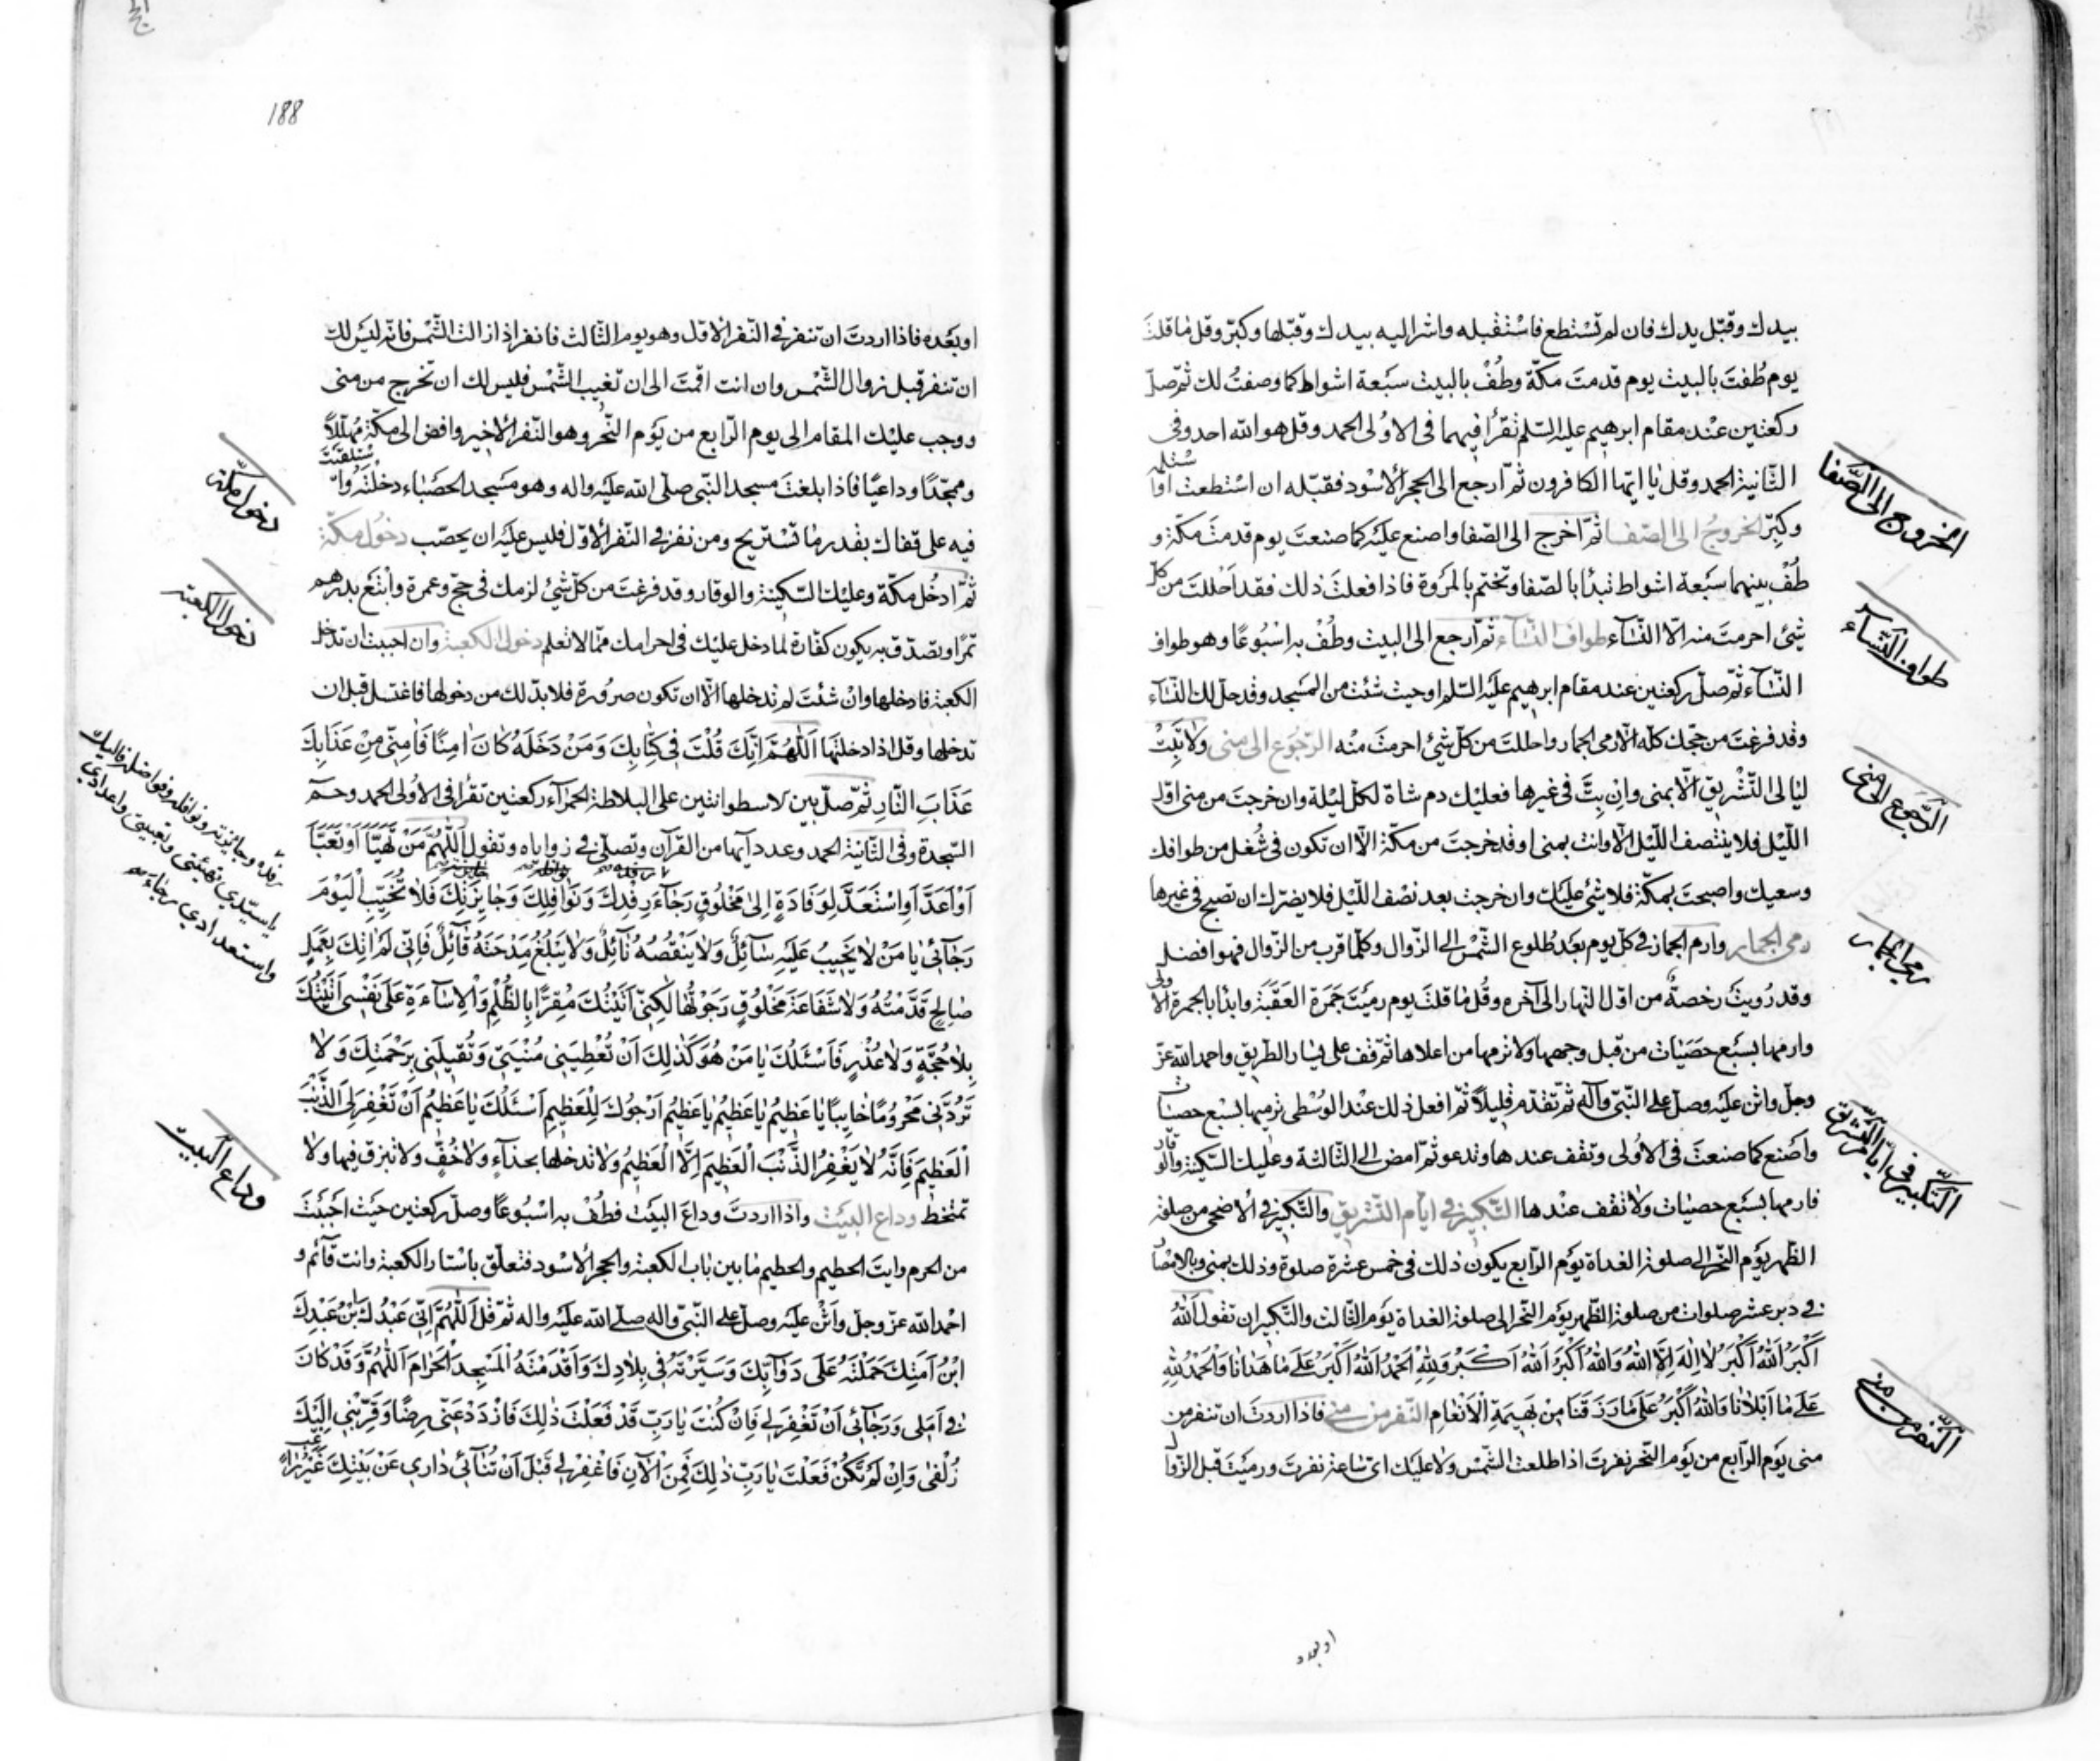 بيدك وقبّل يدك فان لم تستطع فاستقبله واشر اليه بيدك وقبّلها وكبّر وقل ما قلتَ
يوم طُفتَ بالبيت يوم قدمتَ مكّة وطُفْ بالبيت سبعة اشواط كما وصفتُ لك ثمّ صلّ
ركعتين عند مقام ابرهيم عليه السّلم تقرأ فيهما في الاولى الحمد وقل هو الله احد وفي
الثّانية الحمد وقل يا ايّها الكافرون ثمّ ارجع الى الحجر الاسود فقبّله ان استطعت او استلمه
وكبّر الخروج الى الصّفا ثمّ اخرج الى الصّفا واصنع عليه كما صنعتَ يوم قدمتَ مكّة و
طُفْ بينهما سبعة اشواط تبدأ بالصّفا وتختم بالمروة فاذا فعلت ذلك فقد احللتَ من كلّ
شئ احرمتَ منه الّا النّسآء طواف النّسآء ثمّ ارجع الى البيت وطُفْ به اسبُوعًا وهو طواف
النّسآء ثمّ صلّ ركعتين عند مقام ابرهيم عليه السّلم او حيث شئت من المسجد وقد حلّ لك النّسآء
وقد فرغتَ من حجّك كلّه الّا رمي الجمار واحللتَ من كلّ شئ احرمتَ منه الرّجوع الى منى ولا تبِتْ
ليالى التّشريق الّا بمنى وان بتَّ في غيرها فعليك دم شاة لكلّ ليلة وان خرجتَ من منى اوّل
اللّيل فلا ينتصف اللّيل الّا وانت بمنى او قد خرجتَ من مكّة الّا ان تكون في شُغل من طوافك
وسعيك واصبحتَ بمكّة فلا شئ عليك وان خرجت بعد نصف اللّيل فلا يضرّك ان تصبح في غيرها
رمي الجمار وارم الجمار في كلّ يوم بعد طُلوع الشّمس الى الزّوال وكلّما قرب من الزّوال فهو افضل
وقد رُويتْ رخصةٌ من اوّل النّهار الى آخره وقُل ما قلتَ يوم رميتَ جمرة العقبة وابدأ بالجمرة الاولى
وارمها بسبع حصيات من قبل وجهها ولا ترمها من اعلاها ثمّ قف على يسار الطريق واحمد الله عزّ
وجلّ واثن عليه وصلّ على النّبيّ وآله ثمّ تقدّم قليلاً ثمّ افعل ذلك عند الوسطى ترميها بسبع حصيات
واصنع كما صنعتَ في الاولى وتقف عندها وتدعو ثمّ امض الى الثّالثة وعليك السّكينة والوقار
فارمها بسبع حصيات ولا تقف عندها التّكبير في ايّام التّشريق والتّكبير في الاضحى من صلوة
الظّهر يوم النّحر الى صلوة الغداة يوم الرّابع يكون ذلك في خمس عشرة صلوة وذلك بمنى وبالامصار
في دبر عشر صلوات من صلوة الظّهر يوم النّحر الى صلوة الغداة يوم الثّالث والتّكبير ان تقول اللهُ
اَكْبَرُ اللهُ اَكْبَرُ لا اِلٰهَ اِلَّا اللهُ وَاللهُ اَكْبَرُ اَللهُ اَكْبَرُ وَلِلّٰهِ الْحَمْدُ اَللهُ اَكْبَرُ عَلىٰ ما هَدانا وَالْحَمْدُ لِلّٰهِ
عَلىٰ ما اَبْلانا وَاللهُ اَكْبَرُ عَلىٰ ما رَزَقَنا مِنْ بَهيمَةِ الْاَنْعامِ النّفر من منى فاذا اردتَ ان تنفر من
منى يوم الرّابع من يوم النّحر نفرتَ اذا طلعت الشّمس ولا عليك اىّ ساعة نفرتَ ورميتَ قبل الزّوال
الخروج الى الصّفا
طواف النّسآء
الرّجوع الى منى
رمي الجمار
التّكبير في ايّام التّشريق
النّفر من منى
او بعده
188
او بعده فاذا اردتَ ان تنفر في النّفر الاوّل وهو يوم الثّالث فانفر اذا زالت الشّمس فانّه ليس لك
ان تنفر قبل زوال الشّمس وان انت اقمتَ الى ان تغيب الشّمس فليس لك ان تخرج من منى
ووجب عليك المقام الى يوم الرّابع من يوم النّحر وهو النّفر الاخير وافض الى مكّة مُهلّلاً
وممجّدًا وداعيًا فاذا بلغتَ مسجد النّبى صلّى الله عليه واله وهو مسجد الحصباء دخلتَه واستلقيتَ
فيه على قفاك بقدر ما تستريح ومن نفر في النّفر الاوّل فليس عليه ان يحصّب دخول مكّة
ثمّ ادخُل مكّة وعليك السّكينة والوقار وقد فرغتَ من كلّ شئ لزمك في حجّ وعمرة وابتع بدرهم
تمرًا وتصدّق به يكون كفّارة لما دخل عليك في احرامك ممّا لا تعلم دخول الكعبة وان احببت ان تدخل
الكعبة فادخلها وان شئتَ لم تدخلها الّا ان تكون صرورة فلا بدّ لك من دخولها فاغتسل قبل ان
تدخلها وقل اذا دخلتها اَللّٰهُمَّ اِنَّكَ قُلْتَ في كِتابِكَ وَمَنْ دَخَلَهُ كانَ امِنًا فَامِنّي مِنْ عَذابِكَ
عَذابَ النّارِ ثمّ صلّ بين الاسطوانتين على البلاطة الحمرآء ركعتين تقرأ في الاولى الحمد وحم
السّجدة وفي الثّانية الحمد وعدد آيها من القرآن وتصلّي في زواياه وتقول اَللّٰهُمَّ مَنْ تَهَيَّأَ اَوْ تَعَبَّأَ
اَوْ اَعَدَّ اَوِ اسْتَعَدَّ لِوِفادَةٍ اِلىٰ مَخْلُوقٍ رَجآءَ رِفْدِكَ وَنَوافِلِكَ وَجايِزَتِكَ فَلا تُخَيِّبِ الْيَوْمَ
رَجآئي يا مَنْ لا يَخيبُ عَلَيْهِ سآئِلٌ وَلا يَنْقُصُهُ نآئِلٌ وَلا يَبْلُغُ مِدْحَتَهُ قآئِلٌ فَاِنّي لَمْ اتِكَ بِعَمَلٍ
صالِحٍ قَدَّمْتُهُ وَلا شَفاعَةَ مَخْلُوقٍ رَجَوْتُها لكِنّي اَتَيْتُكَ مُقِرًّا بِالظُّلْمِ وَالْاِساءَةِ عَلىٰ نَفْسي اَتَيْتُكَ
بِلا حُجَّةٍ وَلا عُذْرٍ فَاَسْئَلُكَ يا مَنْ هُوَ كَذلِكَ اَنْ تُعْطِيَني مُنْيَتي وَتُقيلَني بِرَحْمَتِكَ وَلا
تَرُدَّني مَحْرُومًا خايِبًا يا عَظيمُ يا عَظيمُ يا عَظيمُ اَرْجُوكَ لِلْعَظيمِ اَسْئَلُكَ يا عَظيمُ اَنْ تَغْفِرَ لِيَ الذَّنْبَ
الْعَظيمَ فَاِنَّهُ لا يَغْفِرُ الذَّنْبَ الْعَظيمَ اِلَّا الْعَظيمُ ولا تدخلها بحذآء ولا خُفٍّ ولا تبزق فيها ولا
تمتخط وداع البيت واذا اردتَ وداع البيت فطُفْ به اسبُوعًا وصلّ ركعتين حيث احببتَ
من الحرم وايتَ الحطيم والحطيم ما بين باب الكعبة والحجر الاسود فتعلّق باستار الكعبة وانت قآئم و
احمد الله عزّ وجلّ واثن عليه وصلّ على النّبى واله صلى الله عليه واله ثمّ قل اَللّٰهُمَّ اِنّي عَبْدُكَ ابْنُ عَبْدِكَ
ابْنُ اَمَتِكَ حَمَلْتَهُ عَلىٰ دَوآبِّكَ وَسَيَّرْتَهُ في بِلادِكَ وَاَقْدَمْتَهُ الْمَسْجِدَ الْحَرامَ اَللّٰهُمَّ وَقَدْ كانَ
في اَمَلي وَرَجآئي اَنْ تَغْفِرَ لي فَاِنْ كُنْتَ يا رَبِّ قَدْ فَعَلْتَ ذلِكَ فَازْدَدْ عَنّي رِضًا وَقَرِّبْني اِلَيْكَ
زُلْفىٰ وَاِنْ لَمْ تَكُنْ فَعَلْتَ يا رَبِّ ذلِكَ فَمِنَ الْآنِ فَاغْفِرْ لي قَبْلَ اَنْ تَنْآئ داري عَنْ بَيْتِكَ غَيْرَ راغِبٍ
دخول مكّة
دخول الكعبة
رفده وجائزته ونوافله وفواضله فاليك
يا سيّدي تهيئتي وتعبيتي واعدادي
واستعدادي رجاء
وداع البيت